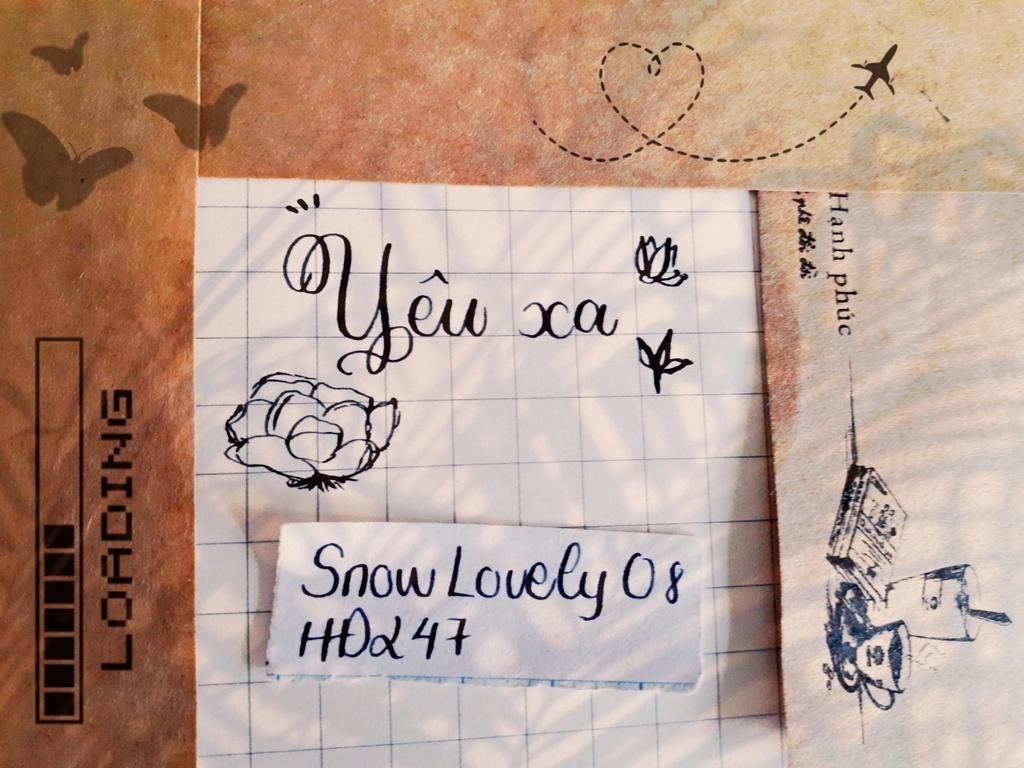 Yêu xa
Snow Lovely 08
HD247
LOADING
Hạnh phúc